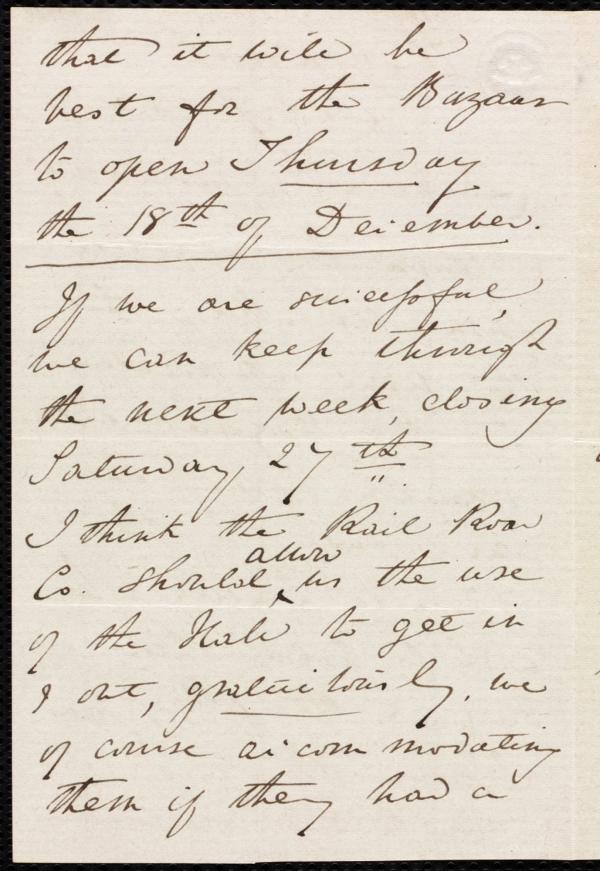 that it will be
best for the Bazaar
to open Thursday
the 18th of December.
If we are successful,
we can keep through
the next week, closing
Saturday, 27th.
I think the Rail Road
Co. should allow us the use
of the Hall to get in
& out, gratuitously, we
of course accommodating
them if they had a